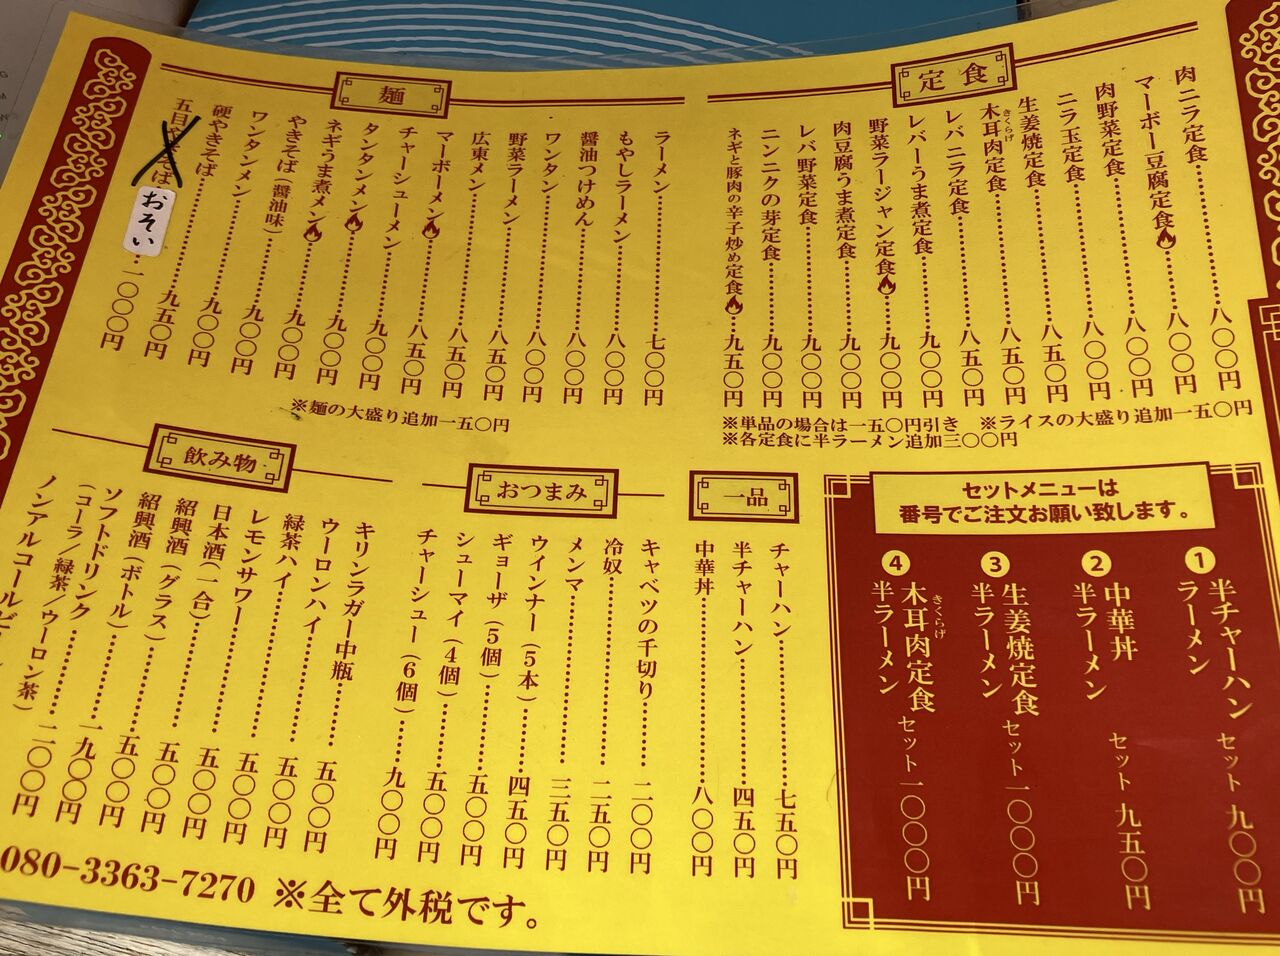 定食
肉ニラ定食 八〇〇円
マーボー豆腐定食 八〇〇円
肉野菜定食 八〇〇円
ニラ玉定食 八〇〇円
生姜焼定食 八五〇円
木耳肉定食 八五〇円
きくらげ
レバニラ定食 八五〇円
レバーうま煮定食 九〇〇円
野菜ラージャン定食 九〇〇円
肉豆腐うま煮定食 九〇〇円
レバ野菜定食 九〇〇円
ニンニクの芽定食 九〇〇円
ネギと豚肉の辛子炒め定食 九五〇円
※単品の場合は一五〇円引き ※ライスの大盛り追加一五〇円
※各定食に半ラーメン追加三〇〇円
麺
ラーメン 七〇〇円
もやしラーメン 八〇〇円
醤油つけめん 八〇〇円
ワンタン 八〇〇円
野菜ラーメン 八五〇円
広東メン 八五〇円
マーボーメン 八五〇円
チャーシューメン 九〇〇円
タンタンメン 九〇〇円
ネギうま煮メン 九〇〇円
やきそば(醤油味) 九〇〇円
ワンタンメン 九〇〇円
硬やきそば 九五〇円
五目やきそば おそい 一〇〇〇円
※麺の大盛り追加一五〇円
セットメニューは
番号でご注文お願い致します。
❶ 半チャーハン
ラーメン セット 九〇〇円
❷ 中華丼
半ラーメン セット 九五〇円
❸ 生姜焼定食
半ラーメン セット 一〇〇〇円
❹ 木耳肉定食
きくらげ
半ラーメン セット 一〇〇〇円
一品
チャーハン 七五〇円
半チャーハン 四五〇円
中華丼 八〇〇円
おつまみ
キャベツの千切り 二〇〇円
冷奴 二五〇円
メンマ 三五〇円
ウインナー(5本) 四五〇円
ギョーザ(5個) 五〇〇円
シューマイ(4個) 五〇〇円
チャーシュー(6個) 九〇〇円
飲み物
キリンラガー中瓶 五〇〇円
ウーロンハイ 五〇〇円
緑茶ハイ 五〇〇円
レモンサワー 五〇〇円
日本酒(一合) 五〇〇円
紹興酒(グラス) 五〇〇円
紹興酒(ボトル) 一九〇〇円
ソフトドリンク 二〇〇円
(コーラ/緑茶/ウーロン茶)
ノンアルコールビ
080-3363-7270 ※全て外税です。